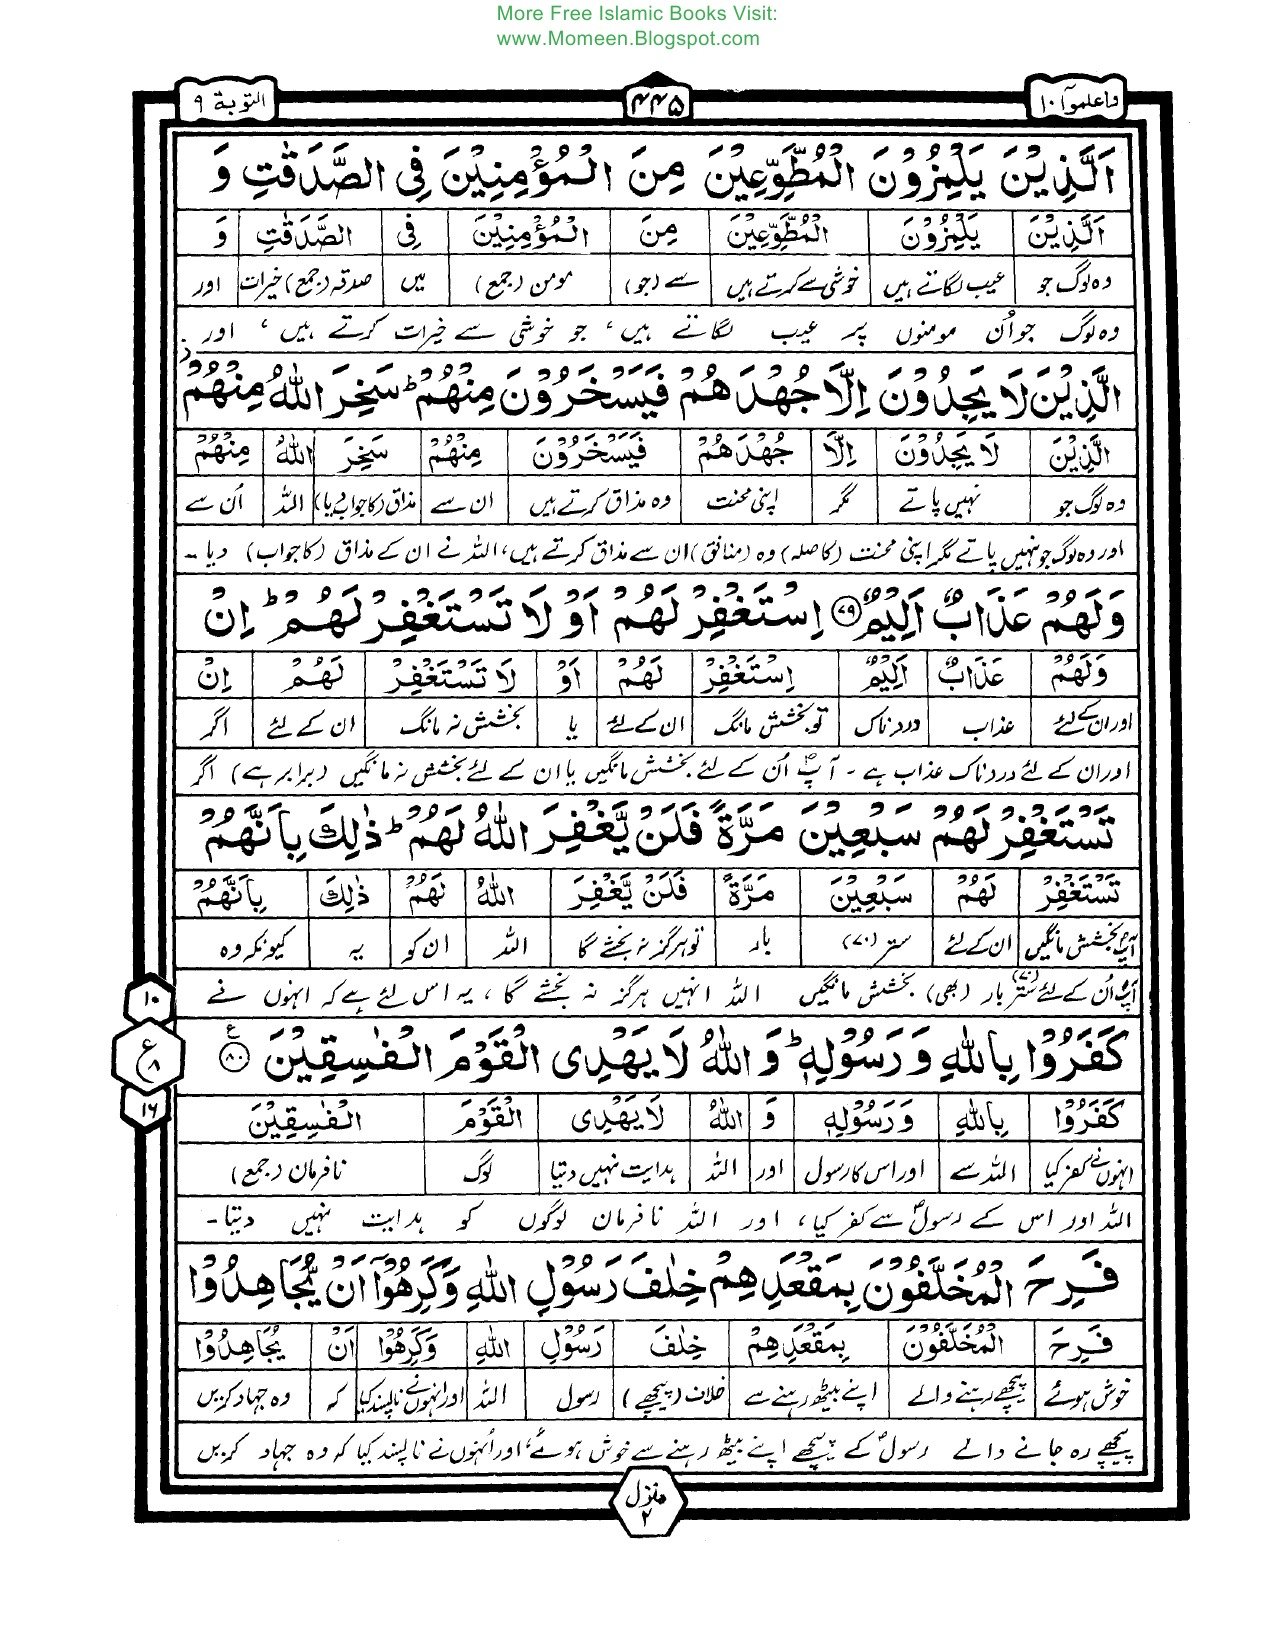 More Free Islamic Books Visit:
www.Momeen.Blogspot.com
واعلموآ ١٠ ۴۴۵ التوبة ۹
اَلَّذِيْنَ يَلْمِزُوْنَ الْمُطَّوِّعِيْنَ مِنَ الْمُؤْمِنِيْنَ فِى الصَّدَقٰتِ وَ
اَلَّذِيْنَ يَلْمِزُوْنَ الْمُطَّوِّعِيْنَ مِنَ الْمُؤْمِنِيْنَ فِى الصَّدَقٰتِ وَ
وہ لوگ جو عیب لگاتے ہیں خوشی سے کرتے ہیں سے (جو) مومن (جمع) میں صدقہ (جمع) خیرات اور
وہ لوگ جو اُن مومنوں پر عیب لگاتے ہیں، جو خوشی سے خیرات کرتے ہیں، اور
الَّذِيْنَ لَا يَجِدُوْنَ اِلَّا جُهْدَهُمْ فَيَسْخَرُوْنَ مِنْهُمْ ؕ سَخِرَ اللّٰهُ مِنْهُمْ ز
الَّذِيْنَ لَا يَجِدُوْنَ اِلَّا جُهْدَهُمْ فَيَسْخَرُوْنَ مِنْهُمْ سَخِرَ اللّٰهُ مِنْهُمْ
وہ لوگ جو نہیں پاتے مگر اپنی محنت وہ مذاق کرتے ہیں ان سے مذاق (کا جواب دیا) اللہ اُن سے
اور وہ لوگ جو نہیں پاتے مگر اپنی محنت (کا صلہ) وہ (منافق) ان سے مذاق کرتے ہیں، اللہ نے ان کے مذاق (کا جواب) دیا۔
وَلَهُمْ عَذَابٌ اَلِيْمٌ ۷۹ اِسْتَغْفِرْ لَهُمْ اَوْ لَا تَسْتَغْفِرْ لَهُمْ ؕ اِنْ
وَلَهُمْ عَذَابٌ اَلِيْمٌ اِسْتَغْفِرْ لَهُمْ اَوْ لَا تَسْتَغْفِرْ لَهُمْ اِنْ
اور ان کے لئے عذاب دردناک تو بخشش مانگ ان کے لئے یا بخشش نہ مانگ ان کے لئے اگر
اور ان کے لئے دردناک عذاب ہے۔ آپؐ اُن کے لئے بخشش مانگیں یا ان کے لئے بخشش نہ مانگیں (برابر ہے) اگر
تَسْتَغْفِرْ لَهُمْ سَبْعِيْنَ مَرَّةً فَلَنْ يَّغْفِرَ اللّٰهُ لَهُمْ ؕ ذٰلِكَ بِاَنَّهُمْ
تَسْتَغْفِرْ لَهُمْ سَبْعِيْنَ مَرَّةً فَلَنْ يَّغْفِرَ اللّٰهُ لَهُمْ ذٰلِكَ بِاَنَّهُمْ
آپ بخشش مانگیں ان کے لئے ستر (۷۰) بار تو ہرگز نہ بخشے گا اللہ ان کو یہ کیونکہ وہ
آپؐ اُن کے لئے ستر (۷۰) بار (بھی) بخشش مانگیں اللہ انہیں ہرگز نہ بخشے گا، یہ اس لئے ہے کہ انہوں نے
۱۰
كَفَرُوْا بِاللّٰهِ وَ رَسُوْلِهٖ ؕ وَ اللّٰهُ لَا يَهْدِى الْقَوْمَ الْفٰسِقِيْنَ ۸۰ ع
ع ۸
۱۶
كَفَرُوْا بِاللّٰهِ وَ رَسُوْلِهٖ وَ اللّٰهُ لَا يَهْدِى الْقَوْمَ الْفٰسِقِيْنَ
انہوں نے کفر کیا اللہ سے اور اس کا رسول اور اللہ ہدایت نہیں دیتا لوگ نافرمان (جمع)
اللہ اور اس کے رسولؐ سے کفر کیا، اور اللہ نافرمان لوگوں کو ہدایت نہیں دیتا۔
فَرِحَ الْمُخَلَّفُوْنَ بِمَقْعَدِهِمْ خِلٰفَ رَسُوْلِ اللّٰهِ وَكَرِهُوْۤا اَنْ يُّجَاهِدُوْا
فَرِحَ الْمُخَلَّفُوْنَ بِمَقْعَدِهِمْ خِلٰفَ رَسُوْلِ اللّٰهِ وَكَرِهُوْٓا اَنْ يُّجَاهِدُوْا
خوش ہوئے پیچھے رہنے والے اپنے بیٹھ رہنے سے خلاف (پیچھے) رسول اللہ اور انہوں نے ناپسند کیا کہ وہ جہاد کریں
پیچھے رہ جانے والے رسولؐ کے پیچھے اپنے بیٹھ رہنے سے خوش ہوئے، اور اُنہوں نے ناپسند کیا کہ وہ جہاد کریں
منزل ۲